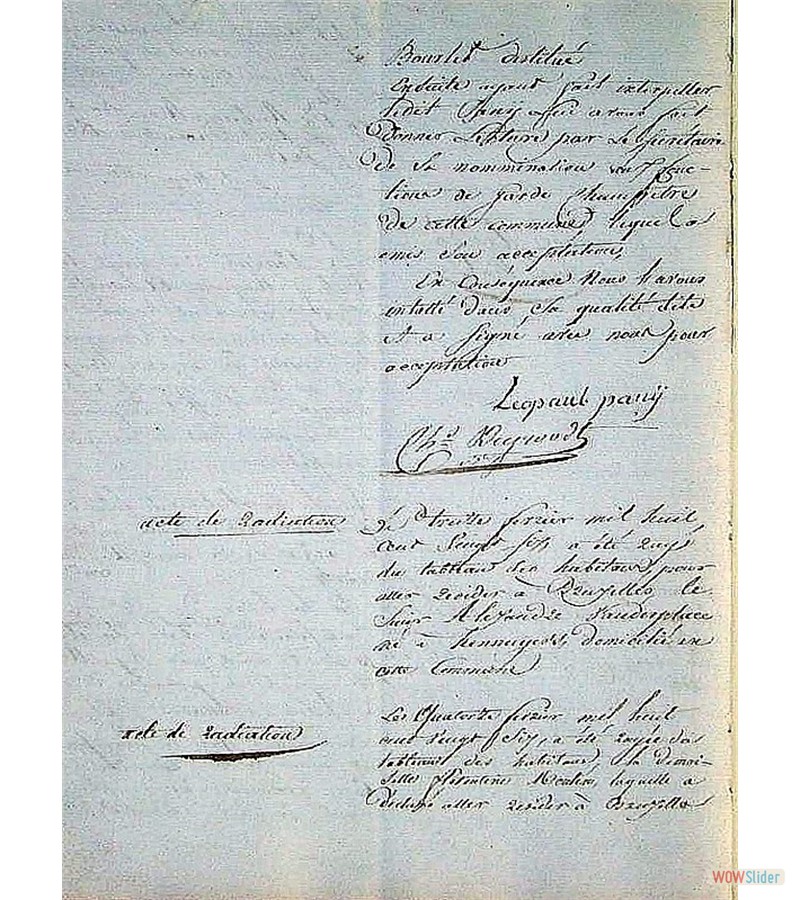 Bourlet destitué
Ensuite ayant fait interpeller
ledit Pany, lui avons fait
donner Lecture par Le Secrétaire
de sa nommination aux fonc-
tions de garde Champêtre
de cette commune, lequel a
emis son acceptation,
En Conséquence Nous l'avons
intallé dans sa qualité dite
et a signé avec nous pour
acceptation
Leopaul pany
Chs
acte de Radiation
Le treize fevrier mil huit,
cent vingt six a été rayé
du tableau des habitans pour
aller resider à Bruxelles le
Sieur Alexandre Vanderplace
né à hennuyeres, domicilié en
cette Commune
acte de Radiation
Le Quatorze fevrier mil huit
cent vingt six, a été rayée du
tableau des habitans, la demoi-
selle florentine laquelle a
déclaré aller resider à Bruxelles
WOWSlider